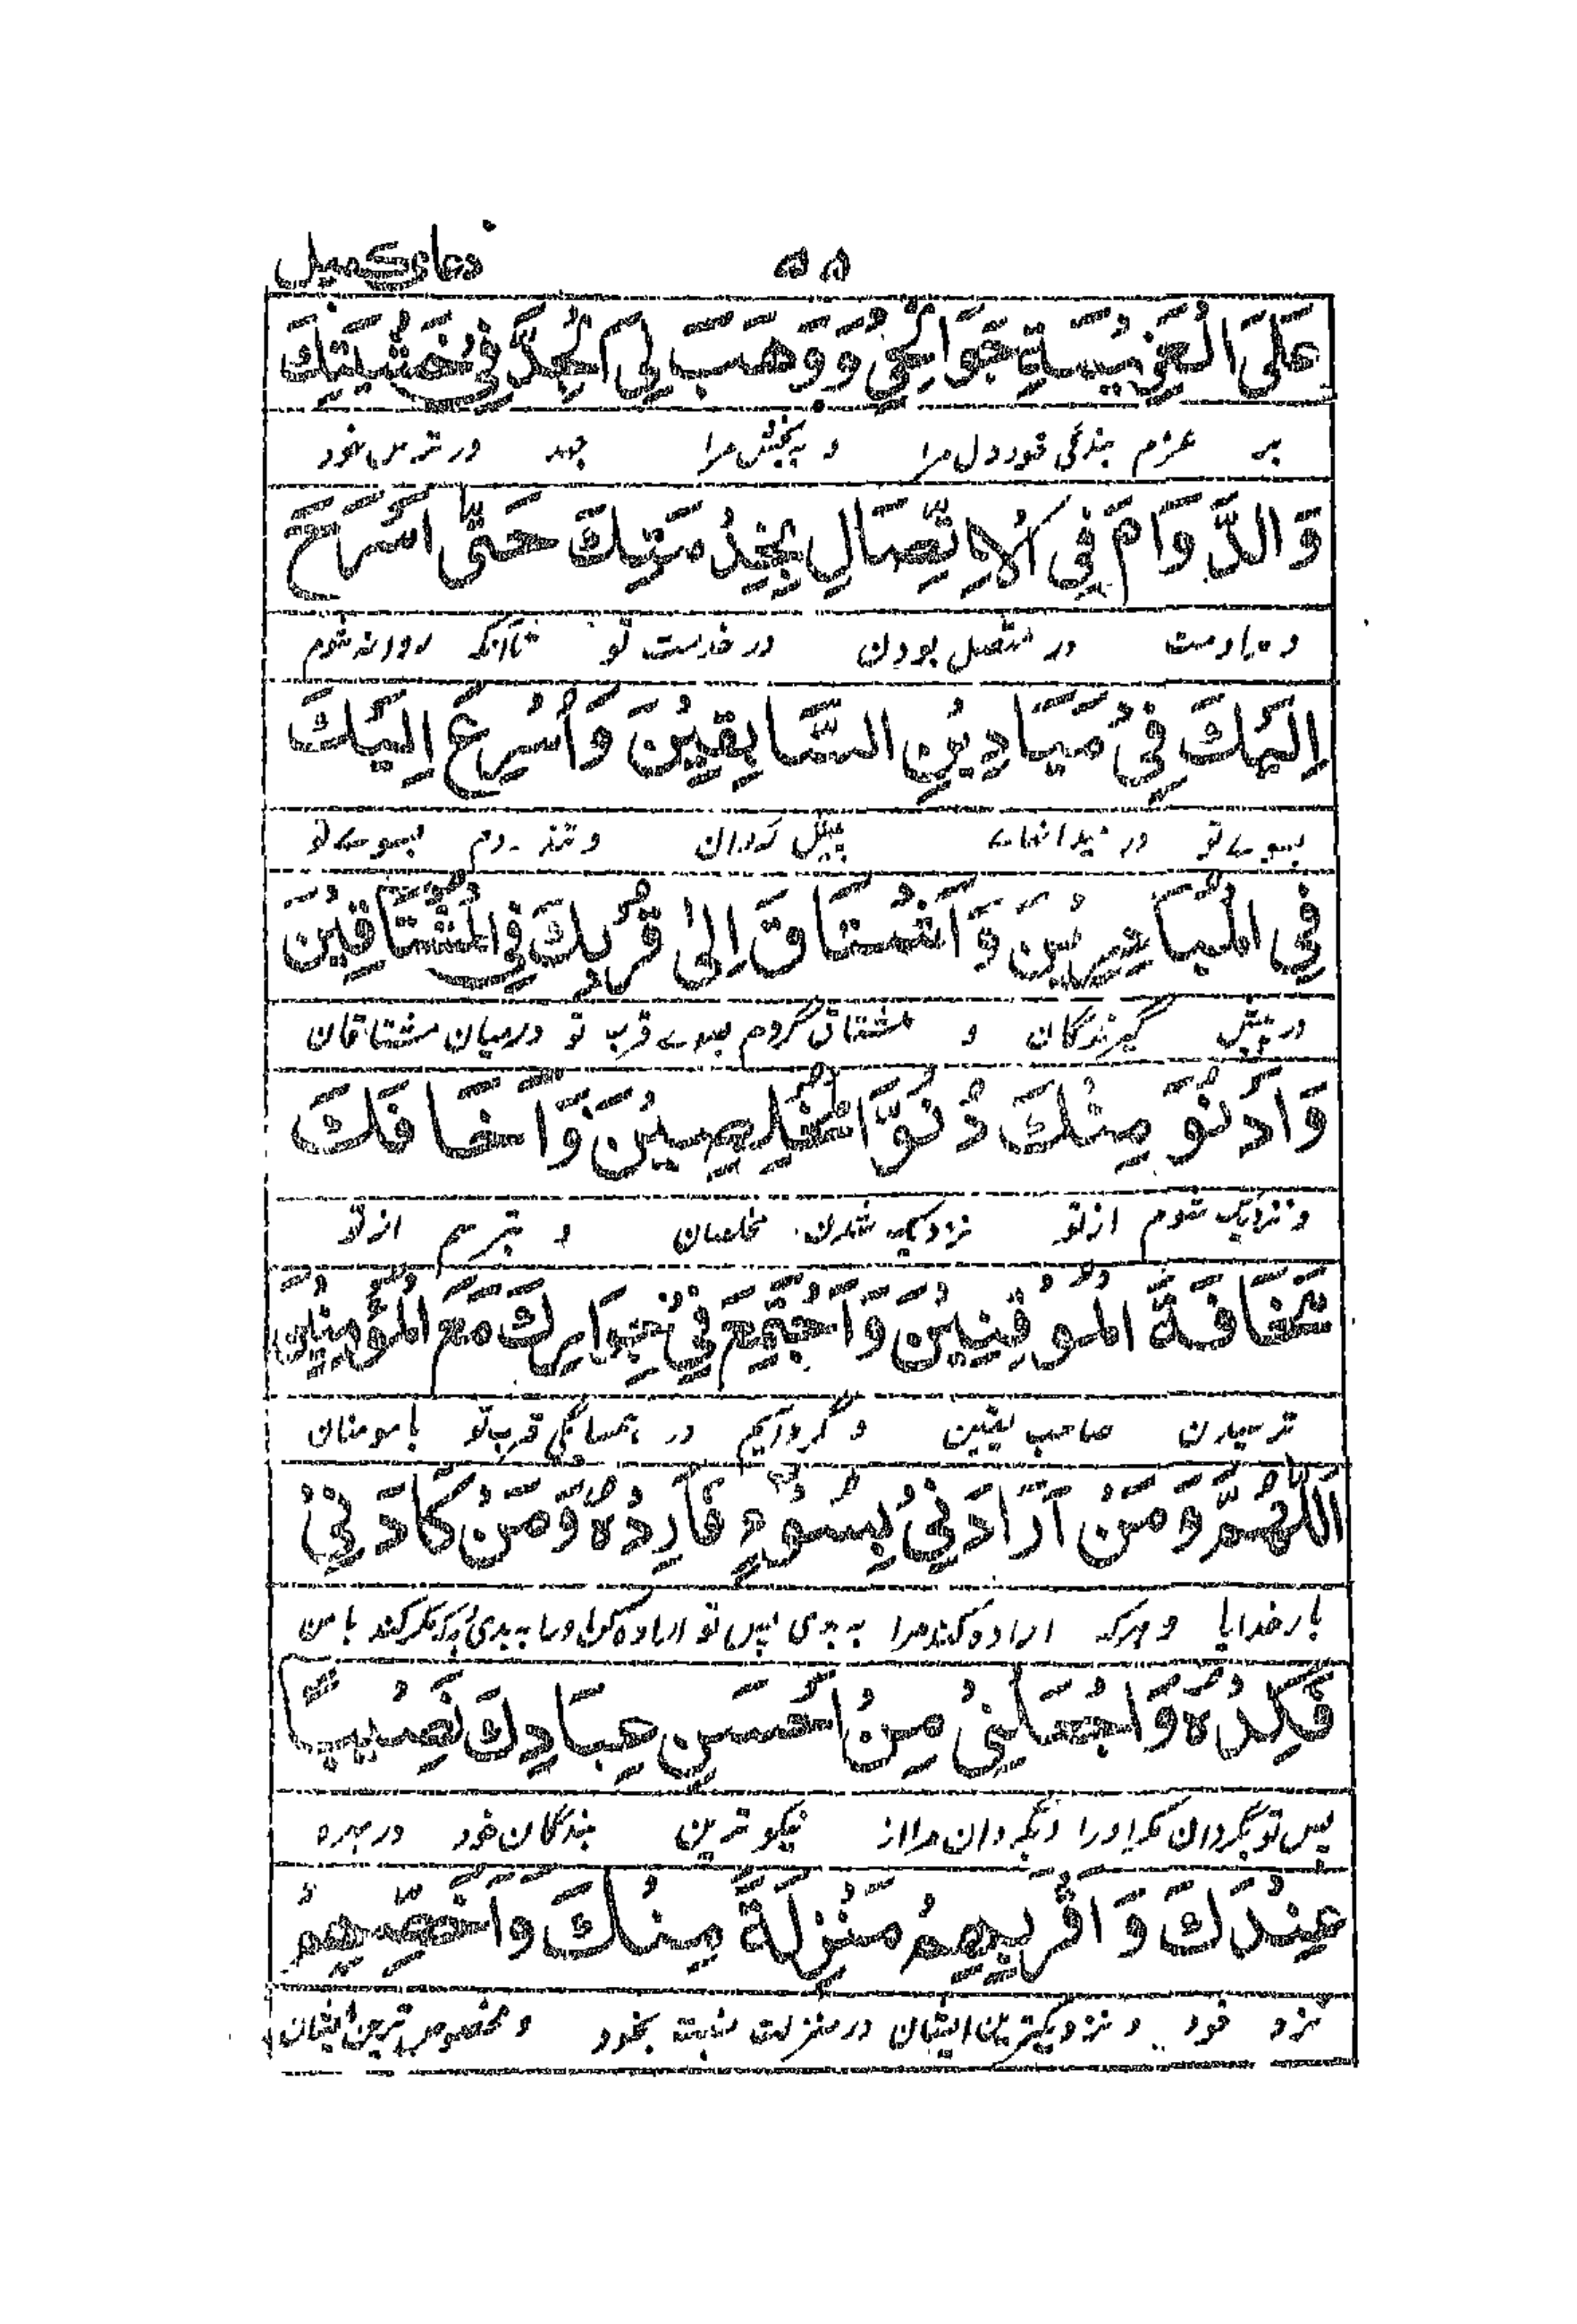 دعای کمیل
۵۵
عَلَى الْعَزِيْمَةِ جَوَانِحِيْ وَوَهَبَ لِيَ الْجِدَّ فِيْ خَشْيَتِكَ
بر عزم بندگی خود دل مرا و به بخش مرا جهد در ترس خود
وَالدَّوَامَ فِي الْاِتِّصَالِ بِخِدْمَتِكَ حَتّٰى اَسْرَحَ
و مداومت در متصل بودن در خدمت تو تا آنکه روانه شوم
اِلَيْكَ فِيْ مَيَادِيْنِ السَّابِقِيْنَ وَاُسْرِعَ اِلَيْكَ
بسوے تو در میدانهاے و تند روم بسوے تو
فِي الْمُبَادِرِيْنَ وَاَشْتَاقَ اِلٰى قُرْبِكَ فِي الْمُشْتَاقِيْنَ
در پیش گیرندگان و مشتاق گردم بسوے قرب تو درمیان مشتاقان
وَاَدْنُوَ مِنْكَ دُنُوَّ الْمُخْلِصِيْنَ وَاَخَافَكَ
و نزدیک شوم از تو نزدیک شدن مخلصان و بترسم از تو
مَخَافَةَ الْمُوْقِنِيْنَ وَاَجْتَمِعَ فِيْ جِوَارِكَ مَعَ الْمُؤْمِنِيْنَ
ترسیدن صاحب یقین و گرد آیم در همسایگی قرب تو با مومنان
اَللّٰهُمَّ وَمَنْ اَرَادَنِيْ بِسُوْءٍ فَاَرِدْهُ وَمَنْ كَادَنِيْ
بار خدایا و هرکه اراده کند مرا به بدی پس تو اراده کن اورا به بدی هرکه مکر کند با من
فَكِدْهُ وَاجْعَلْنِيْ مِنْ اَحْسَنِ عِبَادِكَ نَصِيْبًا
پس تو بگردان مکر اورا و بگردان مرا از نیکو ترین بندگان خود در بهره
عِنْدَكَ وَاَقْرَبِهِمْ مَنْزِلَةً مِنْكَ وَاَخَصِّهِمْ
نزد خود و نزدیکترین ایشان در منزلت نسبت بخود و مخصوص ترین ایشان